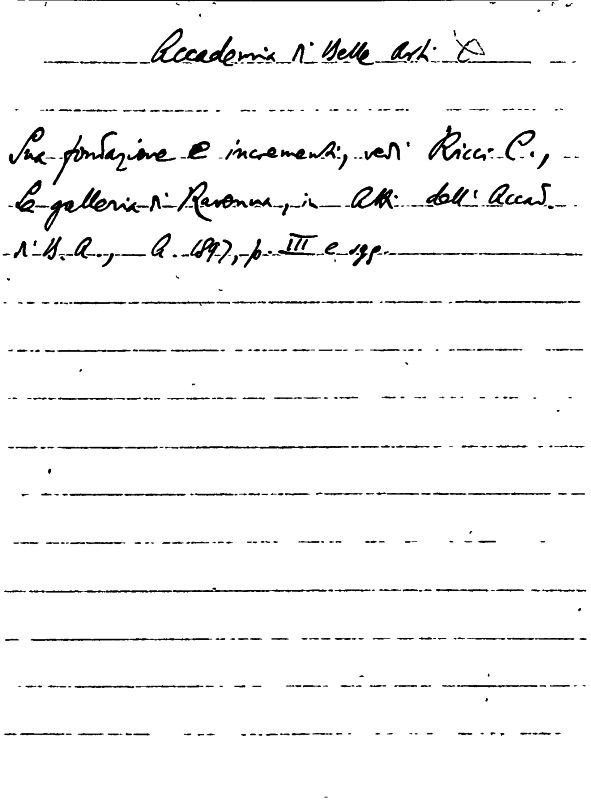 Accademia di Belle Arti
Sua fondazione e incrementi, vedi Ricci C.,
La galleria di Ravenna, in Atti dell'Accad.
di B.A., A. 1897, p. III e sgg.